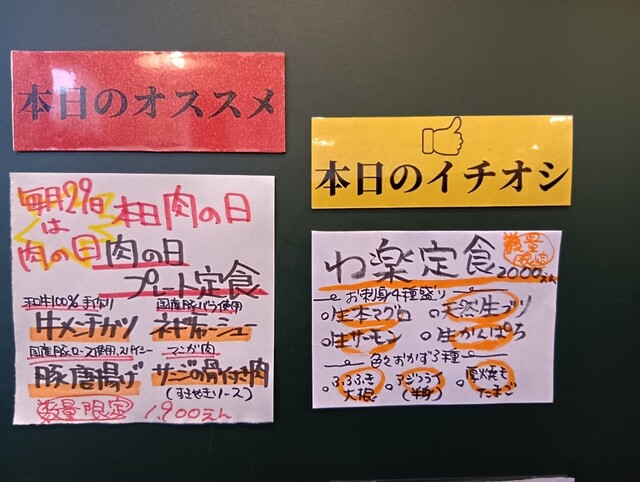 本日のオススメ
毎月29日
は
肉の日
本日肉の日
肉の日
プレート定食
和牛100%手作り
牛メンチカツ
国産豚バラ使用
ネギチャーシュー
国産豚ロース使用、スパイシー
豚唐揚げ
マンガ肉
サンジの骨付き肉
(すきやきソース)
数量限定
1,900えん
本日のイチオシ
わ楽定食
数量
限定
2000えん
お刺身4種盛り
・生本マグロ
・天然生ブリ
・生サーモン
・生かんぱち
色々おかず3種
・ふろふき
大根
・アジフライ
(半身)
・直火焼き
たまご